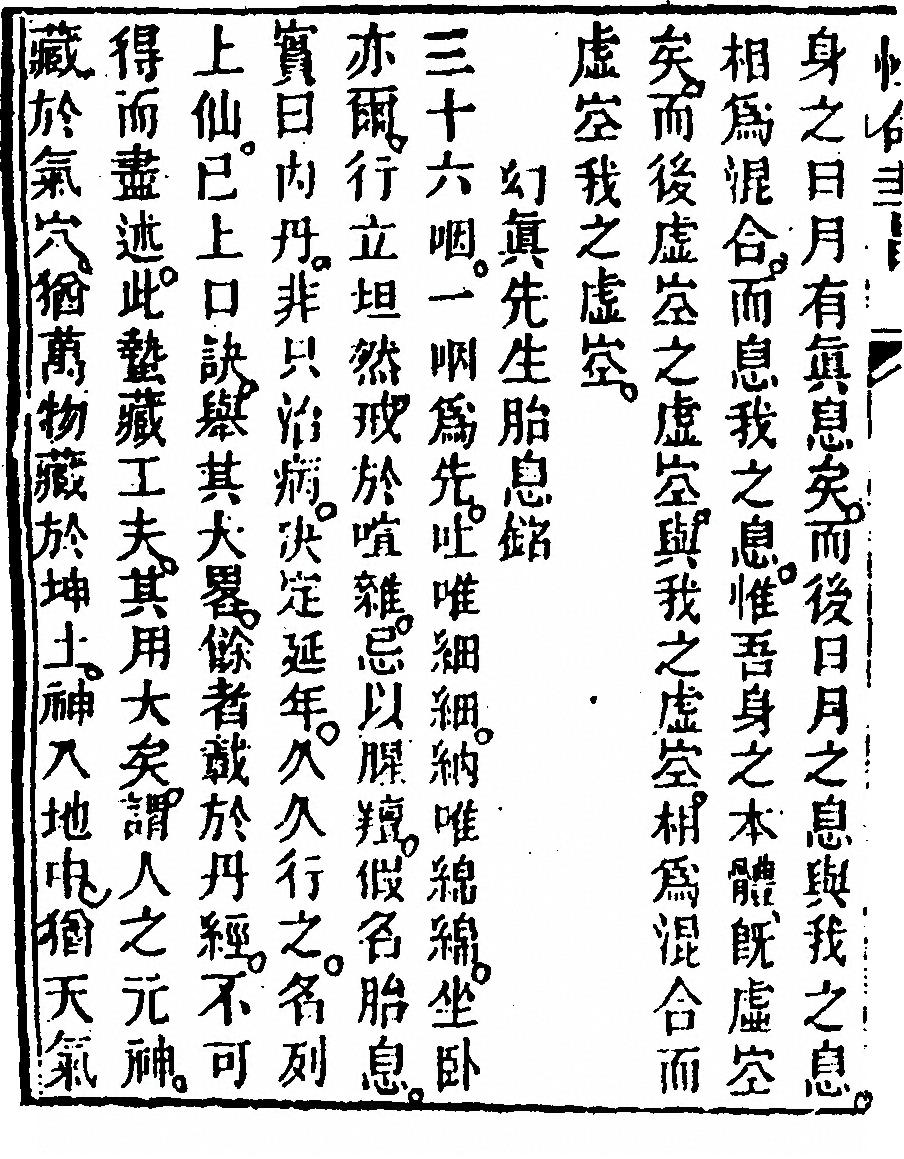 身之日月有眞息矣。而後日月之息與我之息。
相爲混合。而息我之息。惟吾身之本體、旣虛空
矣。而後虛空之虛空。與我之虛空。相爲混合而
虛空我之虛空。
幻眞先生胎息銘
三十六咽。一咽爲先。吐唯細細。納唯綿綿。坐卧
亦爾。行立坦然。戒於喧雜。忌以腥羶。假名胎息。
實曰內丹。非只治病。決定延年。久久行之。名列
上仙。已上口訣。舉其大畧。餘者載於丹經。不可
得而盡述。此蟄藏工夫。其用大矣。謂人之元神。
藏於氣穴。猶萬物藏於坤土。神入地中、猶天氣